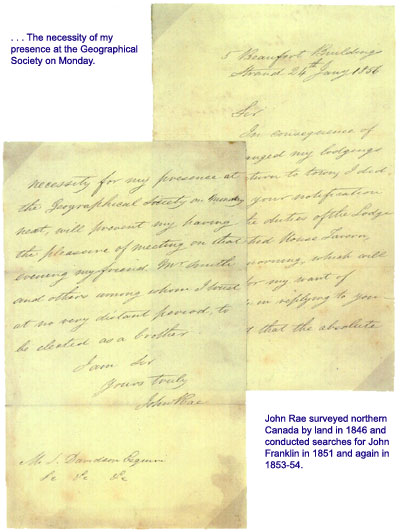 . . . The necessity of my
presence at the Geographical
Society on Monday.
5 Beaufort Buildings
Strand 24th Jany 1856
Sir
In consequence of
anged my lodgings
turn to town, I did,
your notification
e duties of the Lodge
hed House Tavern,
morning, which will
for my want of
in replying to your
that the absolute
necessity for my presence at
the Geographical Society on Monday
next, will prevent my having
the pleasure of meeting on that
evening my friend Mr Smith
and others among whom I trust
at no very distant period, to
be elected as a brother.
I am Sir
Yours truly
John Rae
Mr J. Esquire
&c &c &c
John Rae surveyed northern
Canada by land in 1846 and
conducted searches for John
Franklin in 1851 and again in
1853-54.